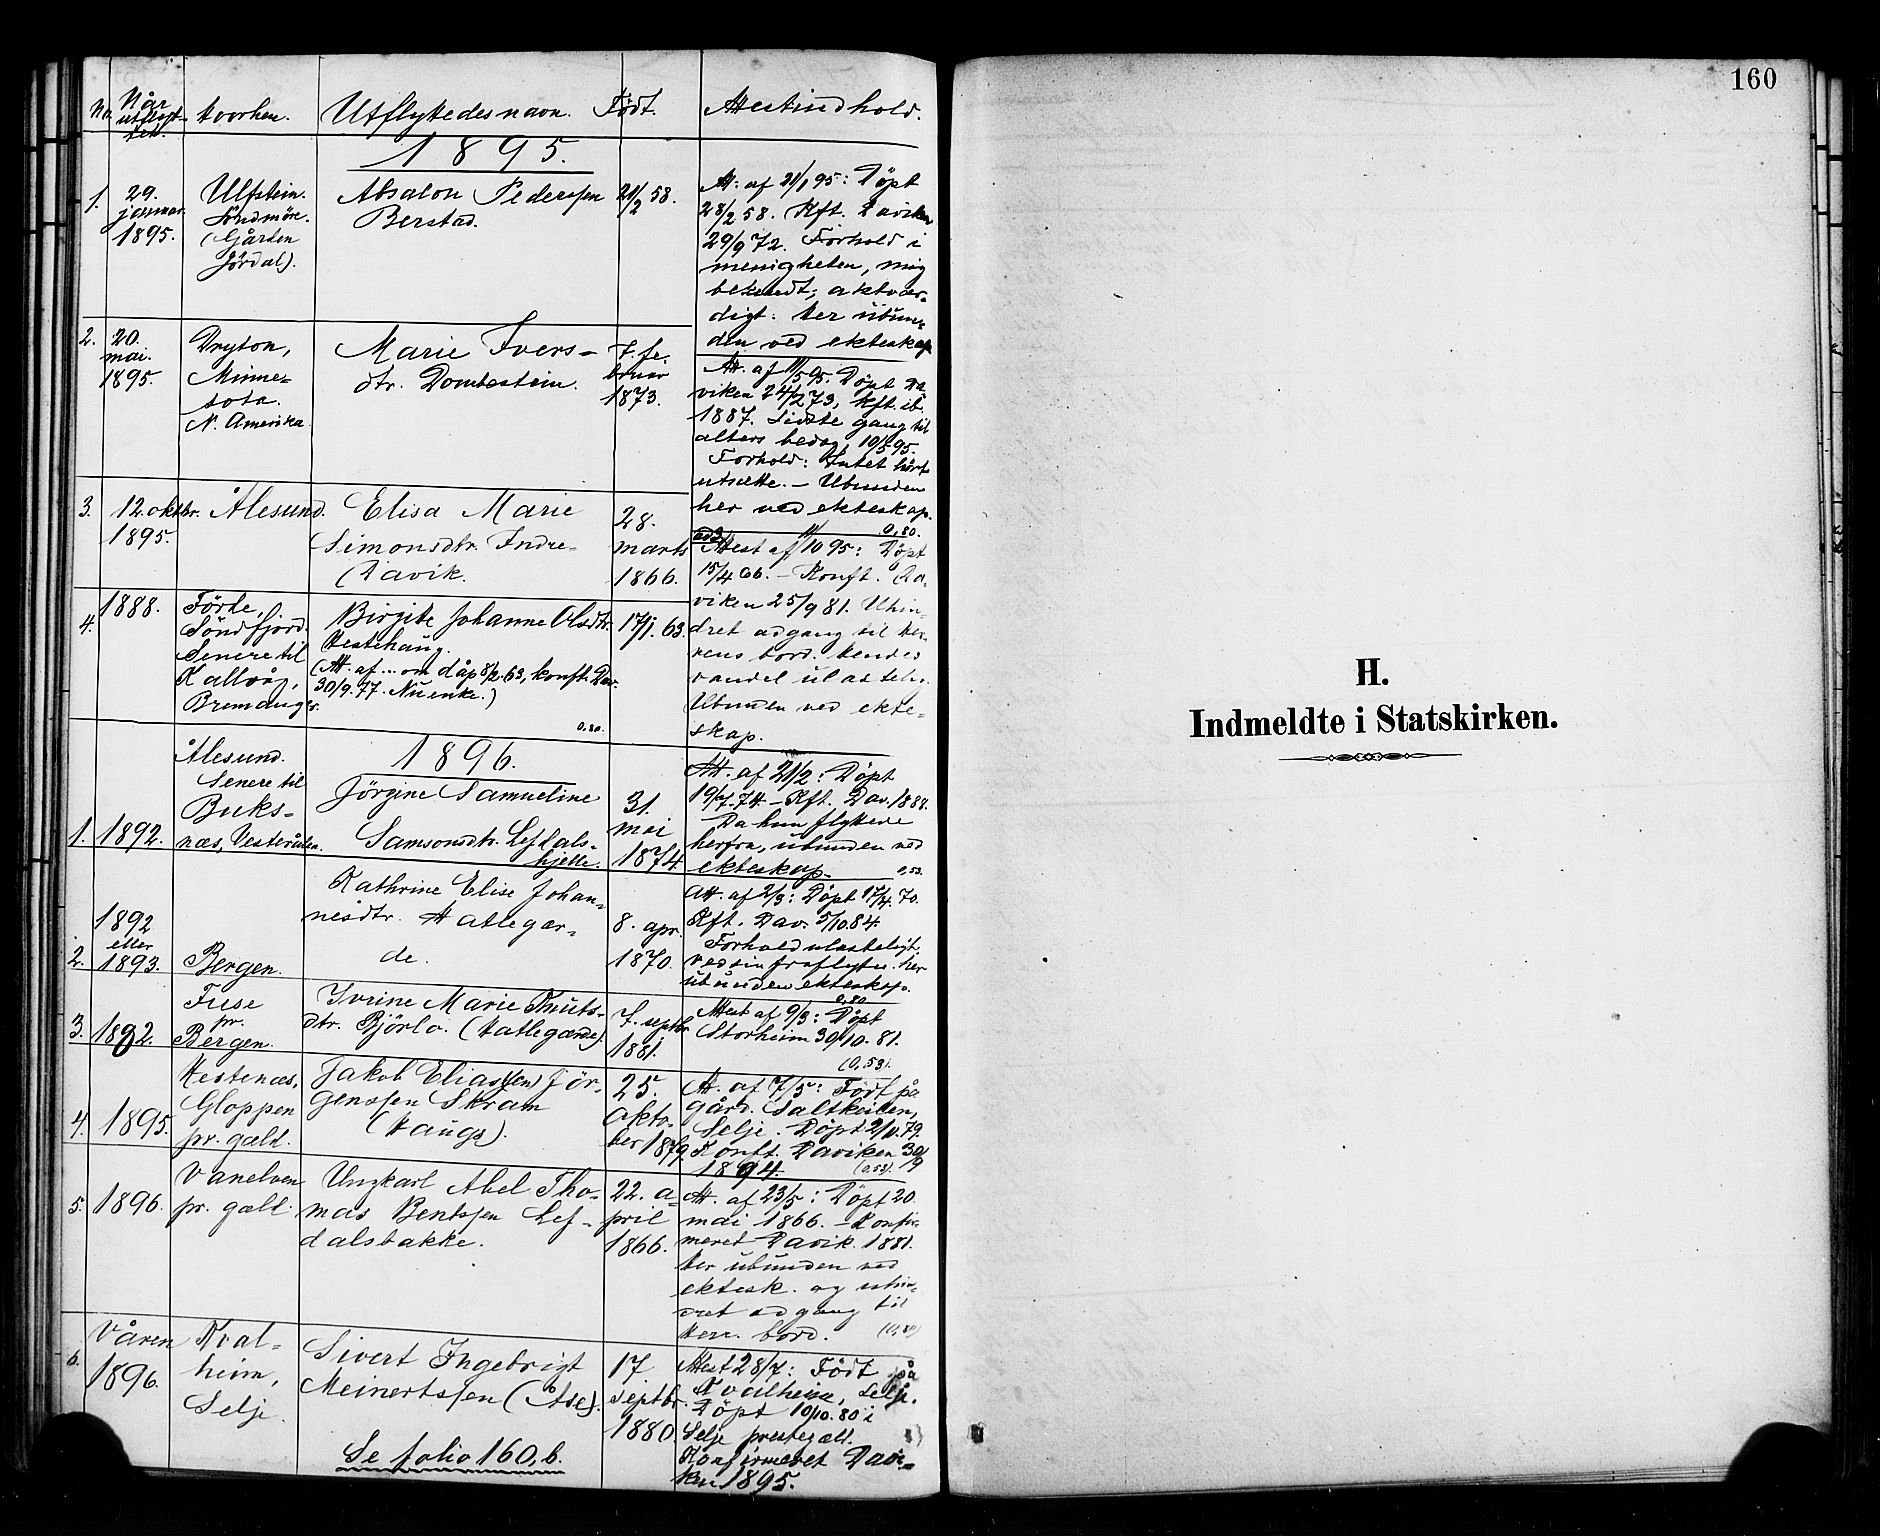 No. Når utflyttet. Hvorhen. Utflyttedes navn. Født. Attestindhold.
1895.
1. 29. januar 1895.
Ulfstein. Söndmöre. (Gården Jördal).
Absalon Pederssen
Berstad.
21/2 58.
Att. af 21/1 95: Döpt
28/2 58. Kft. Daviken
29/9 72. Forhold i
menigheten, mig
bekendt, aktvær-
digt. Her ubun-
den ved ekteskap
2. 20. mai. 1895.
Dryton,
Minne-
sota.
N. Amerika
Marie Ivers-
dtr. Dombestein.
7. fe-
bruar
1873.
Att. af 11/5 95. Döpt Da
viken 24/2 73, kft. ib.
1887. Sidste gang til
alters bedag, 10/5 95.
Forhold: Intet hört
utsætte. – Ubunden
her ved ekteskap.
0,80.
3. 12. oktbr. 1895.
Ålesund.
Elisa Marie
Simonsdtr. Indre-
Davik.
28.
marts
1866.
ad 3 Attest af 11/10 95: Döpt
15/4 66. – Konft. Da-
viken 25/9 81. Uhin-
dret adgang til her-
rens bord. Hendes
vandel ulastelig.
Ubunden ved ekte-
skap.
4. 1888.
Förde,
Söndfjord.
Senere til
Kallvåg,
Bremanger.
Birgite Johanne Olsdtr.
Hestehaug.
(Att. af ... om dåp 8/2 63, konft. Dav.
30/9 77. Nu enke.)
0,80.
17/1. 63.
1896.
1. 1892.
Ålesund.
Senere til
Buks-
næs, Vesterålen.
Jörgine Samueline
Samsonsdtr. Lefdals-
hjelle.
31.
mai
1874
Att. af 21/2: Döpt
19/7. 74. – Kft. Dav. 1888.
Da hun flyttede
herfra, ubunden ved
ekteskap.
0,53.
2. 1892
eller
1893.
Bergen.
Kathrine Elise Johan-
nesdtr. Hatlegær-
de.
8. apr.
1870.
Att. af 2/3: Döpt 17/4. 70.
Kft. Dav. 5/10. 84.
Forhold ulasteligt
ved sin fraflytn. her
ubunden ekteskap.
0,80
3. 1892.
Fuse
pr.
Bergen.
Ivrine Marie Knuts-
dtr. Björlo. (Hatlegærde).
7. septbr.
1881.
Attest af 9/3: Döpt
Storheim 30/10. 81.
(0,53).
4. 1895.
Hestenæs,
Gloppen
pr. gæld.
Jakob Elias(sen) Jör-
genssen Skram
(Hauge).
25.
okto-
ber 1879.
Att. af 7/5: Födt på
gård. Saltkeilen,
Selje. Döpt 2/11. 79.
Konft. Daviken 30/9
1894. (0,53).
5. 1896.
Vanelven
pr. gæld.
Ungkarl Abel Tho-
mas Bentssen Lef-
dalsbakke.
22. a-
pril
1866.
Att. af 23/5: Döpt 20.
mai 1866. – Konfir-
meret Davik. 1881.
Her ubunden ved
ektesk. og uhin-
dret adgang til
Herr. bord. (0,80)
6. Våren
1896.
Kval-
heim,
Selje.
Sivert Ingebrigt
Meinertssen (Åse).
17.
septbr.
1880.
Attest 28/7: Födt på
Kvalheim, Selje.
Döpt 10/10. 80 i
Selje prestegæld.
Konfirmeret Davi-
ken 1895.
Se folio 160, b.
160
H.
Indmeldte i Statskirken.